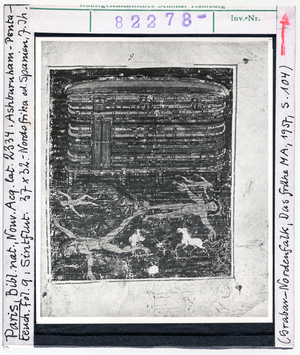 Kunstgeschichtliches Seminar Marburg
82278- Inv.-Nr.
9
Paris, Bibl. nat. Nouv. Acq. lat. 2334: Ashburnham-Penta-
teuch, fol. 9: Sintflut 37 x 32 - Nordafrika od. Spanien, 7. Jh.
(Grabar-Nordenfalk, Das frühe MA, 1957, S. 104)